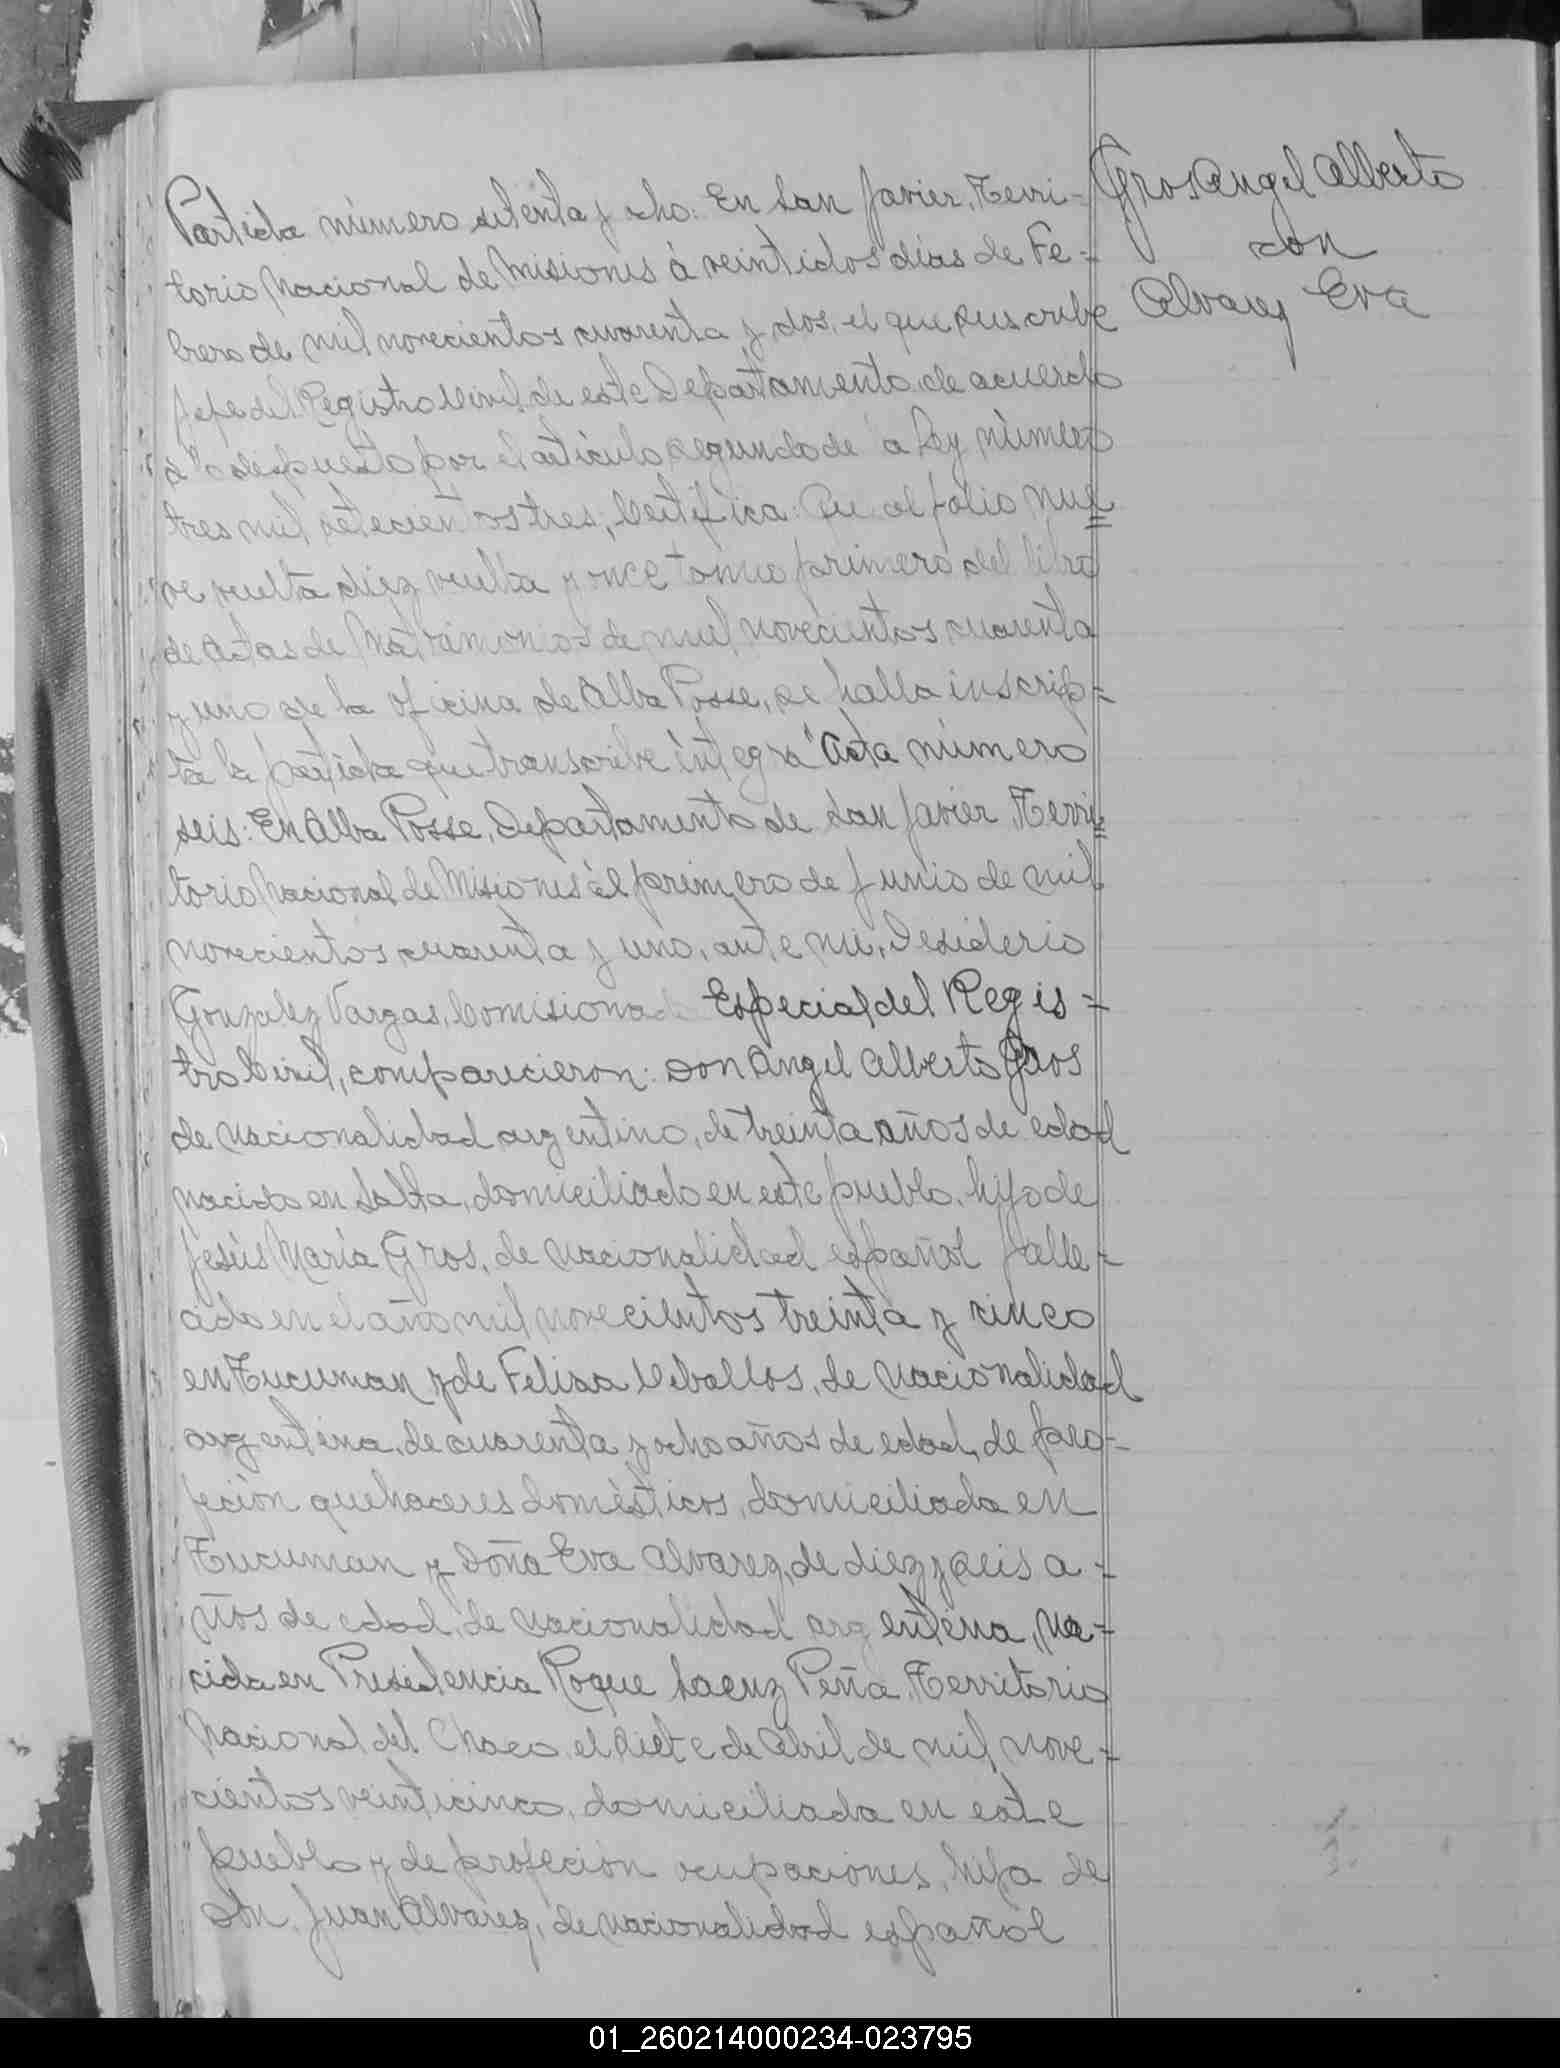 Gros Angel Alberto
con
Alvarez Eva
Partida número setenta y ocho: En San Javier, Terri=
torio Nacional de Misiones á veintidos dias de Fe=
brero de mil novecientos cuarenta y dos, el que suscribe
Jefe del Registro Civil de este Departamento, de acuerdo
a lo dispuesto por el artículo segundo de la Ley número
tres mil setecientos tres; Certifica: Que al folio nue=
ve vuelta diez vuelta y once tomo primero del libro
de actas de Matrimonios de mil novecientos cuarenta
y uno de la oficina de Alba Posse, se halla inscrip=
ta la partida que transcribe íntegra "Acta número
seis: En Alba Posse, Departamento de San Javier, Terri=
torio Nacional de Misiones al primero de Junio de mil
novecientos cuarenta y uno, ante mi, Desiderio
Gonzalez Vargas, Comisionado Especial del Regis=
tro Civil, comparecieron: Don Angel Alberto Gros
de nacionalidad argentino, de treinta años de edad
nacido en Salta, domiciliado en este pueblo, hijo de
Jesús María Gros, de nacionalidad español falle=
cido en el año mil novecientos treinta y cinco
en Tucuman y de Felisa Ceballos, de nacionalidad
argentina, de cuarenta y ocho años de edad, de pro=
feción quehaceres domésticos, domiciliada en
Tucuman y Doña Eva Alvarez, de diez y seis a=
ños de edad, de nacionalidad argentina, na=
cida en Presidencia Roque Saenz Peña, Territorio
Nacional del Chaco, el siete de Abril de mil nove=
cientos veinticinco, domiciliada en este
pueblo y de profeción ocupaciones, hija de
Don Juan Alvarez, de nacionalidad español
01_260214000234-023795